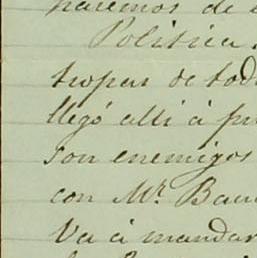 haremos de
Politica.
tropas de tod
llegó alli á pr
son enemigos
con Mr. Bau
Va á mandar